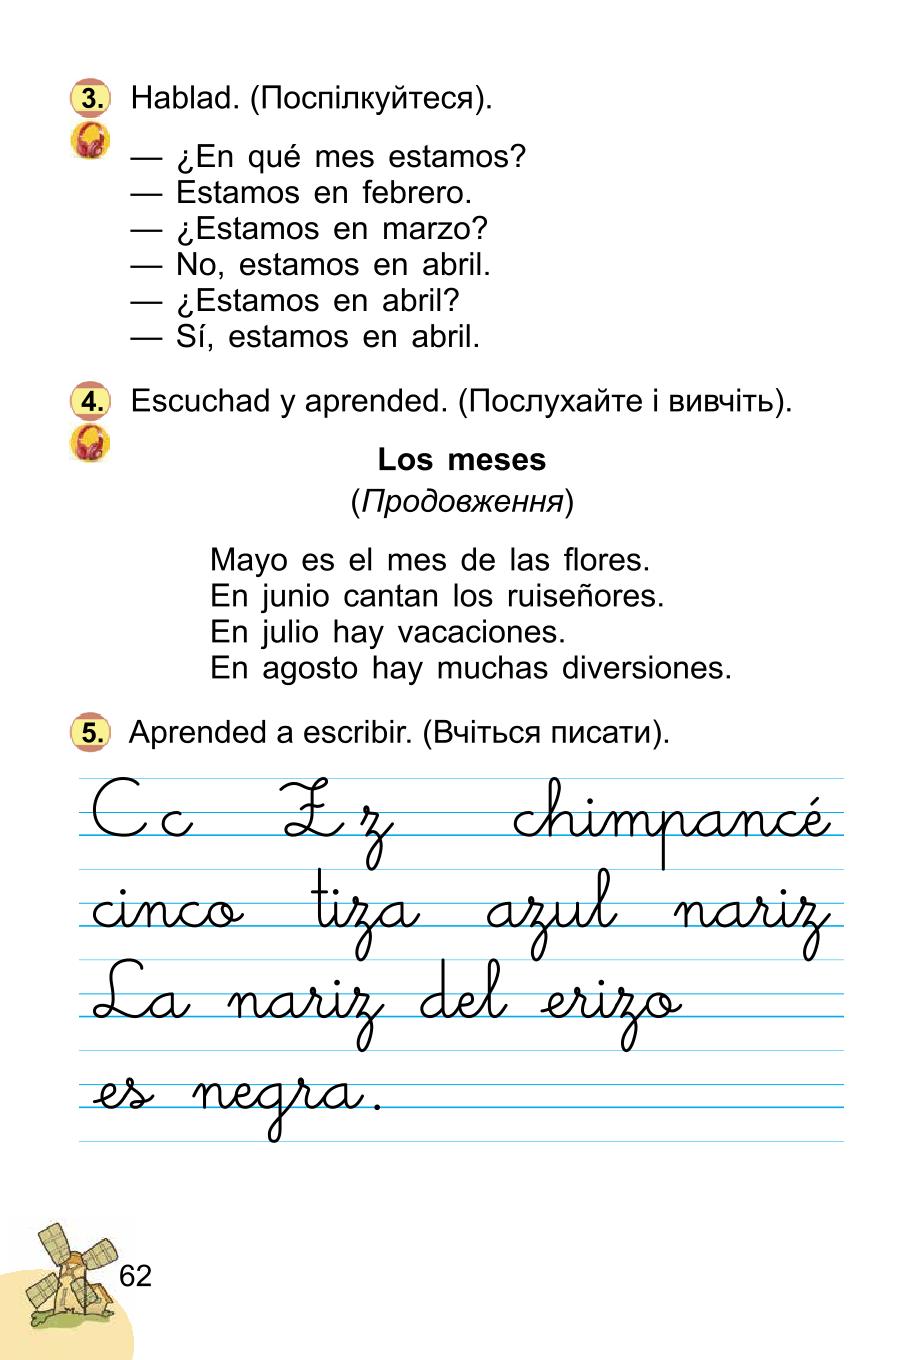 3. Hablad. (Поспілкуйтеся).
— ¿En qué mes estamos?
— Estamos en febrero.
— ¿Estamos en marzo?
— No, estamos en abril.
— ¿Estamos en abril?
— Sí, estamos en abril.
4. Escuchad y aprended. (Послухайте і вивчіть).
Los meses
(Продовження)
Mayo es el mes de las flores.
En junio cantan los ruiseñores.
En julio hay vacaciones.
En agosto hay muchas diversiones.
5. Aprended a escribir. (Вчіться писати).
C c Z z chimpancé
cinco tiza azul nariz
La nariz del erizo
es negra.
62